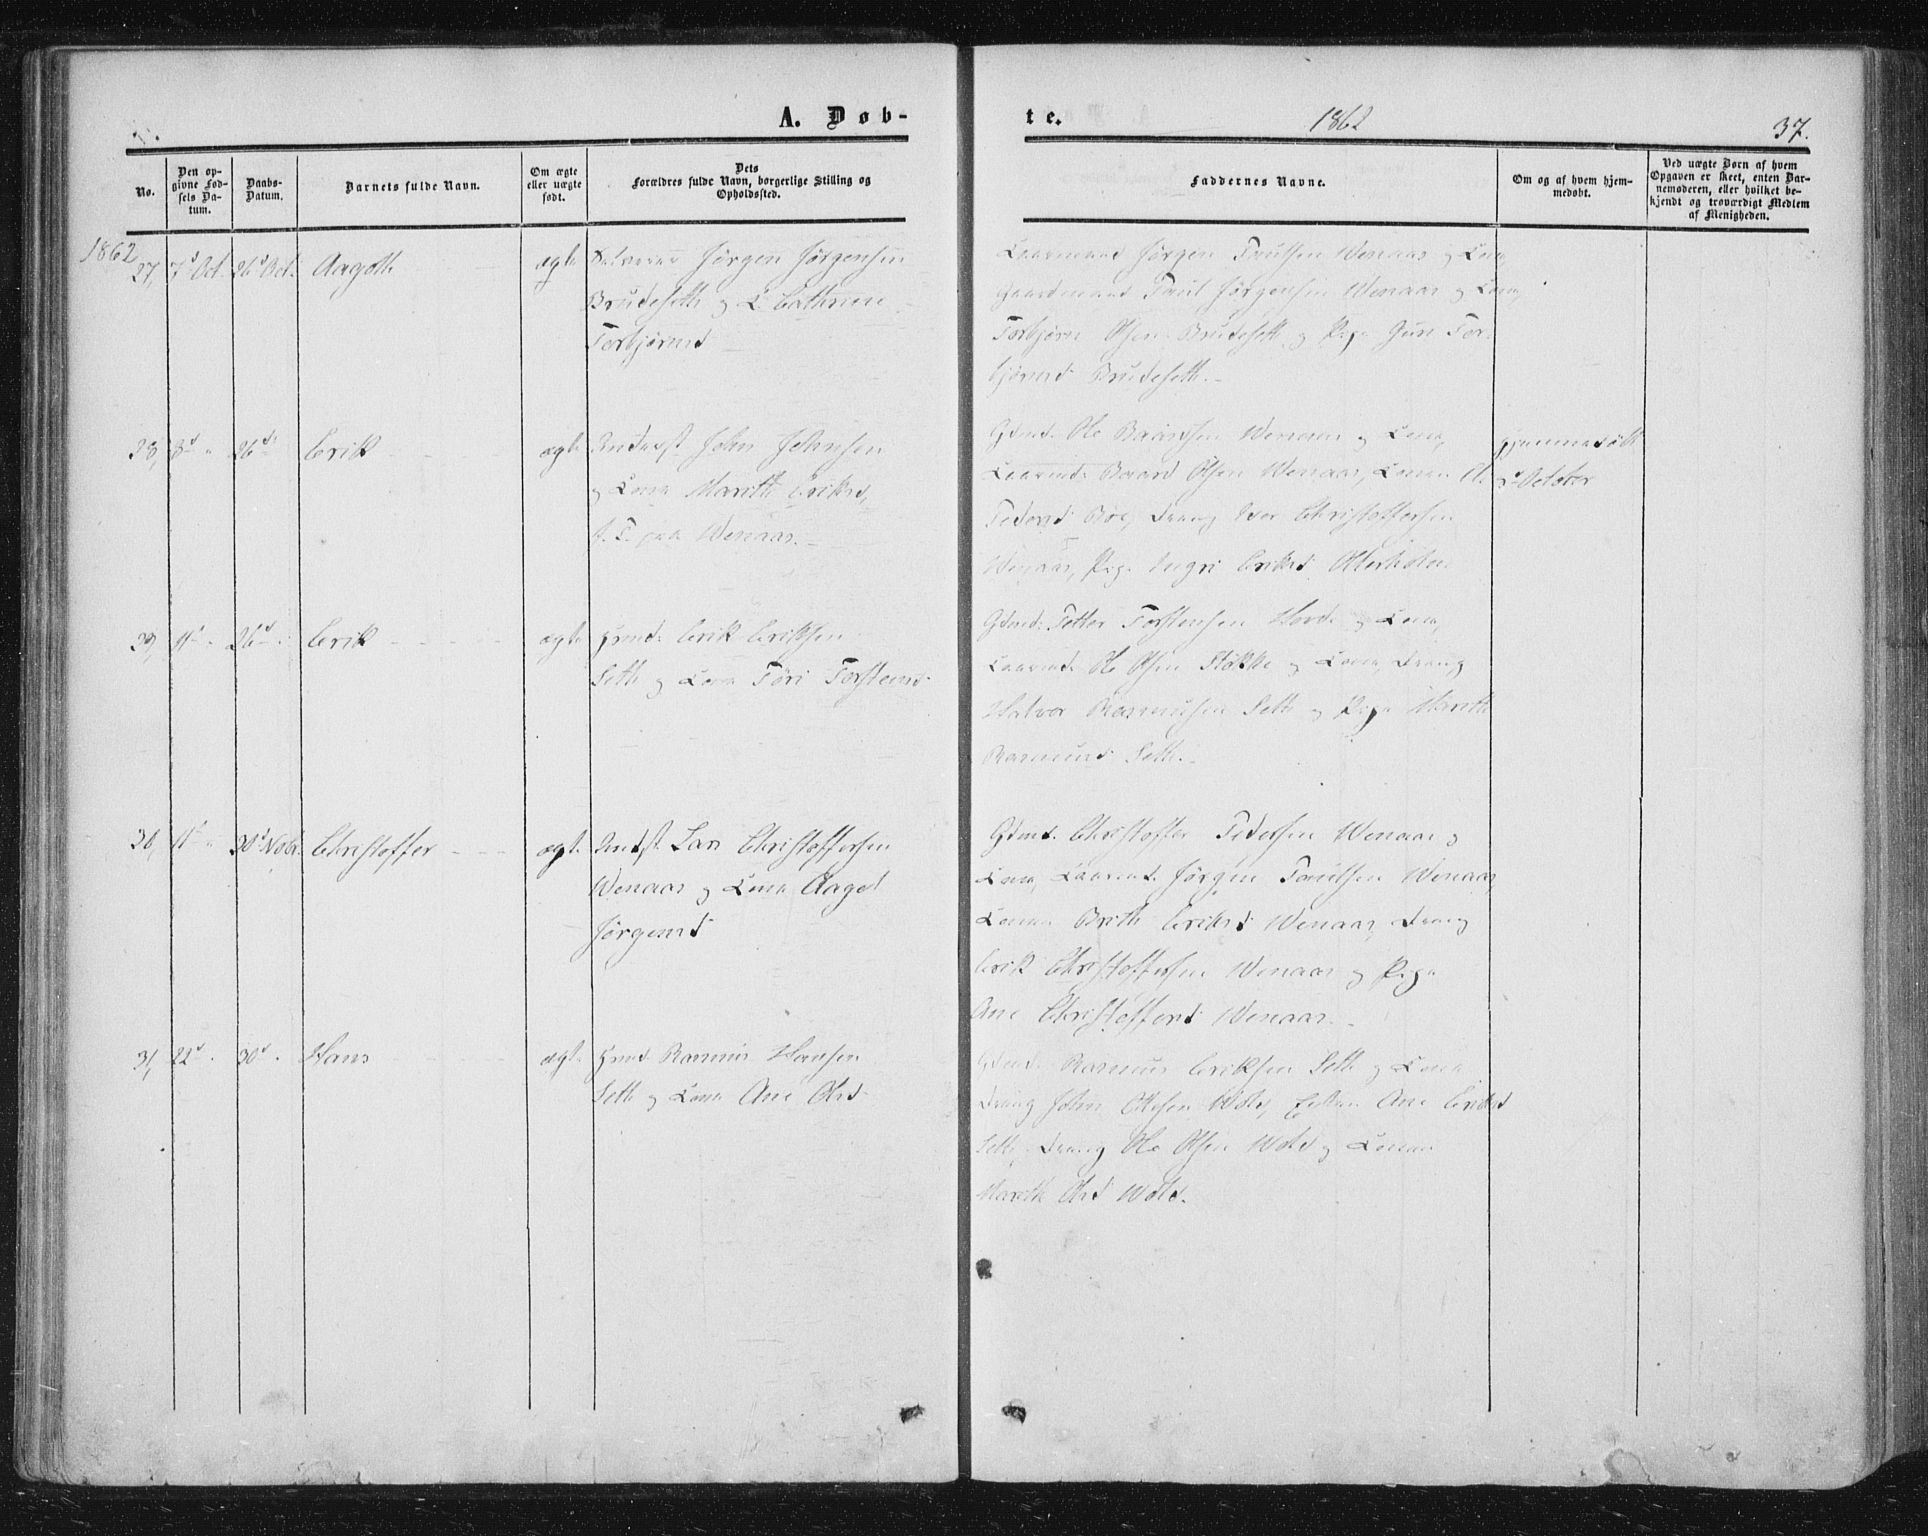 A. Døb-
te.
1862
37.
No.
Den op-
givne Fød-
sels Da-
tum.
Daabs-
Datum.
Barnets fulde Navn.
Om ægte
eller uægte
født.
Dets
Forældres fulde Navn, borgerlige Stilling og
Opholdssted.
Faddernes Navne.
Om og af hvem hjem-
medøbt.
Ved uægte Børn af hvem
Opgaven er skeet, enten Bar-
nemoderen, eller hvilket be-
kjendt og troværdigt Medlem
af Menigheden.
1862
27, 7d Oct. 26d Oct. Aagoth ægte Jørgen Jørgensen
Brudeseth og K. Cathrine
Torbjørnsd
Jørgen Paulsen Wenaas og Kona,
Gaardmand Paul Jørgensen Wenaas og Kona,
Torbjørn Olsen Brudeseth og Pige Guri Tor-
bjørnsd Brudeseth.
28, 8d " 26d " Erik ægte Inderst John Johnsen
og Kona Marith Eriksd,
f. T. paa Wenaas.
Gdmd. Ole Baardsen Wenaas og Kona,
Kaarmd. Baard Olsen Wenaas, Konen
Pedersd Boe, Dreng Iver Christoffersen
Wenaas, Pige Ingri Eriksd Otterholm
Hjemmedøbt
October
29, 11d " 26d " Erik ægte Grmd. Erik Eriksen
Seth og Kona Jøri Torstensd
Gdmd. Petter Torstensen Hovde og Kona,
Kaarmd. Ole Olsen Stokke og Kona, Dreng
Halvor Rasmusen Seth og Pige Marith
Rasmusd Seth.
30, 11d " 30d Nobr. Christoffer ægte Indst. Lars Christoffersen
Wenaas og Kona Aagot
Jørgensd
Gdmd. Christoffer Pedersen Wenaas og
Kona, Kaarmd. Jørgen Paulsen Wenaas,
Konen Brith Eriksd Wenaas, Dreng
Erik Christoffersen Wenaas og Pige
Ane Christoffersd Wenaas.
31, 22d " 30d " Hans ægte Grmd. Rasmus Hansen
Seth og Kona Ane Olsd
Gdmd. Rasmus Eriksen Seth og Kona
Dreng John Ottesen Wold, Enken Ane Eriksd
Seth, Dreng Ole Olsen Wold og Konen
Marith Olsd Wold.